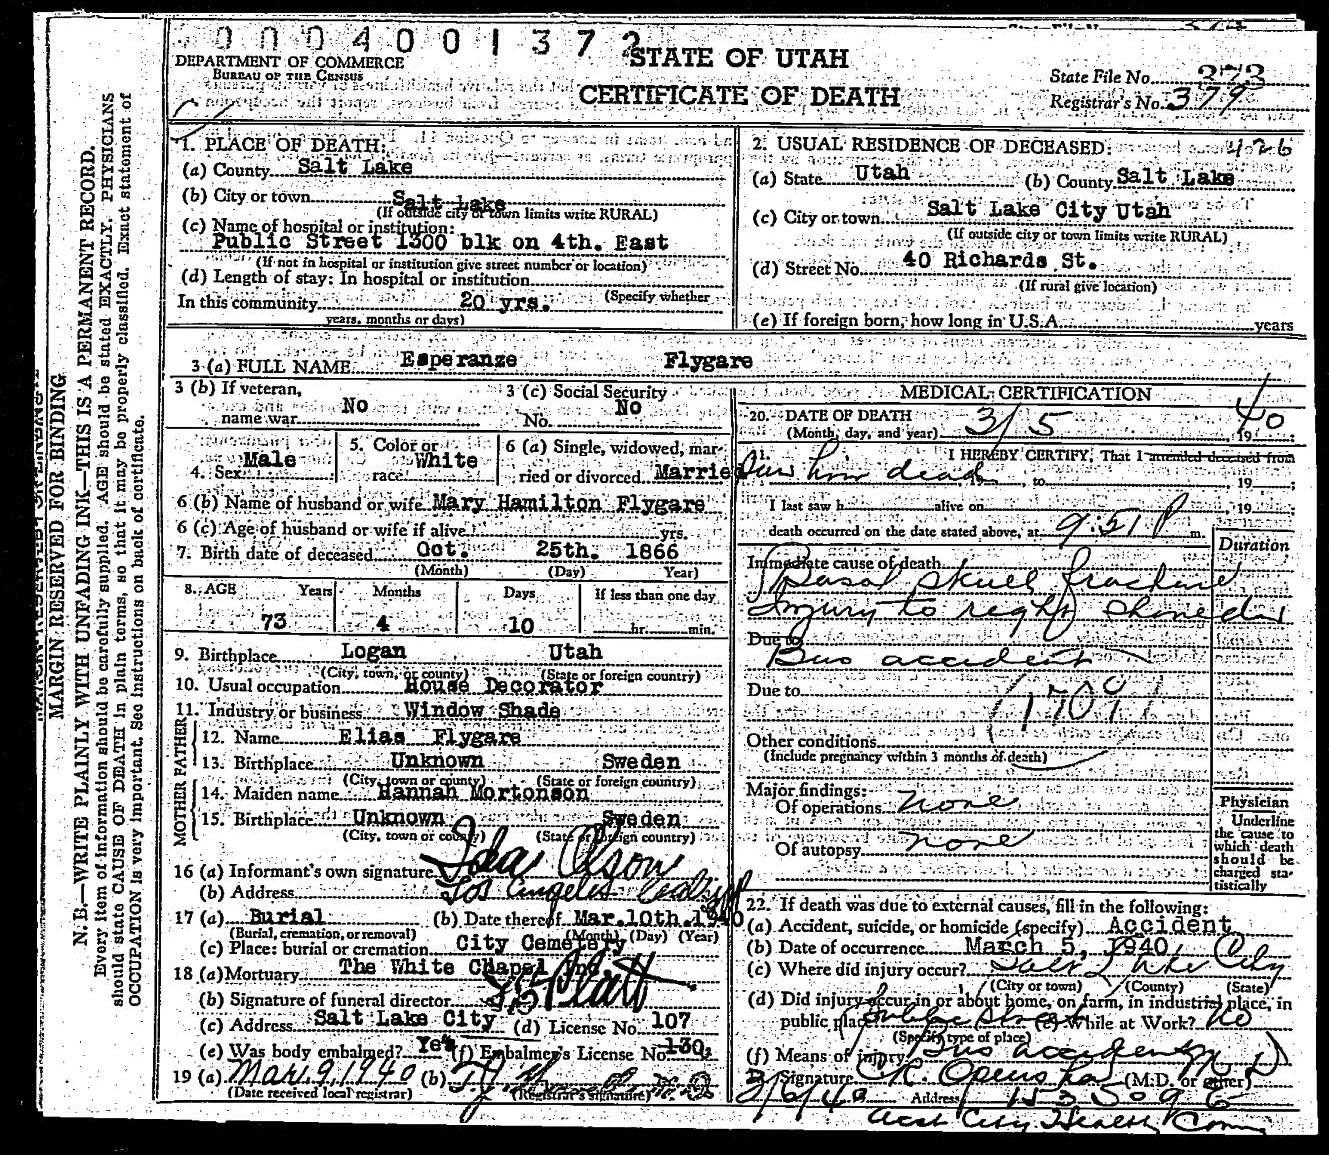 0004001372
STATE OF UTAH
DEPARTMENT OF COMMERCE
BUREAU OF THE CENSUS
CERTIFICATE OF DEATH
State File No. 373
Registrar's No. 379
1. PLACE OF DEATH:
(a) County Salt Lake
(b) City or town Salt Lake
(If outside city or town limits write RURAL)
(c) Name of hospital or institution:
Public Street 1300 blk on 4th. East
(If not in hospital or institution give street number or location)
(d) Length of stay: In hospital or institution
(Specify whether
In this community 20 yrs.
years, months or days)
2. USUAL RESIDENCE OF DECEASED: 426
(a) State Utah (b) County Salt Lake
(c) City or town Salt Lake City Utah
(If outside city or town limits write RURAL)
(d) Street No. 40 Richards St.
(If rural give location)
(e) If foreign born, how long in U.S.A. years
3 (a) FULL NAME Esperanze Flygare
3 (b) If veteran,
name war No
3 (c) Social Security
No. No
4. Sex Male
5. Color or
race White
6 (a) Single, widowed, mar-
ried or divorced Married
6 (b) Name of husband or wife Mary Hamilton Flygare
6 (c) Age of husband or wife if alive yrs.
7. Birth date of deceased Oct. 25th. 1866
(Month) (Day) Year)
8. AGE Years Months Days If less than one day
73 4 10 hr. min.
9. Birthplace Logan Utah
(City, town, or county) (State or foreign country)
10. Usual occupation House Decorator
11. Industry or business Window Shade
FATHER
12. Name Elias Flygare
13. Birthplace Unknown Sweden
(City, town or county) (State or foreign country)
MOTHER
14. Maiden name Hannah Mortonson
15. Birthplace Unknown Sweden
(City, town or county) (State or foreign country)
16 (a) Informant's own signature Ida Olson
(b) Address Los Angeles Calif
17 (a) Burial (b) Date thereof Mar. 10th. 1940
(Burial, cremation, or removal) (Month) (Day) (Year)
(c) Place: burial or cremation City Cemetery
18 (a) Mortuary The White Chapel Inc.
(b) Signature of funeral director Platt
(c) Address Salt Lake City (d) License No. 107
(e) Was body embalmed? Yes (f) Embalmer's License No. 130
19 (a) Mar. 9, 1940 (b) M.D.
(Date received local registrar) (Registrar's signature)
MEDICAL CERTIFICATION
20. DATE OF DEATH
(Month, day, and year) 3/5 1940
21. I HEREBY CERTIFY, That I attended deceased from
Saw him dead, to 19 ;
I last saw h alive on , 19 ;
death occurred on the date stated above, at 9:51 P m.
Duration
Immediate cause of death
Basal skull fracture
Injury to right shoulder
Due to
Bus accident
Due to
(170g)
Other conditions
(Include pregnancy within 3 months of death)
Major findings:
Of operations none
Of autopsy none
Physician
Underline
the cause to
which death
should be
charged sta-
tistically
22. If death was due to external causes, fill in the following:
(a) Accident, suicide, or homicide (specify) Accident
(b) Date of occurrence March 5, 1940
(c) Where did injury occur? Salt Lake City
(City or town) (County) (State)
(d) Did injury occur in or about home, on farm, in industrial place, in
public place? Public Street (e) While at Work? No
(Specify type of place)
(f) Means of injury Bus accident
Signature M D
(M.D. or other)
3/6/40 Address
City Health Com
MARGIN RESERVED FOR BINDING
N. B.—WRITE PLAINLY WITH UNFADING INK—THIS IS A PERMANENT RECORD.
Every item of information should be carefully supplied. AGE should be stated EXACTLY. PHYSICIANS
should state CAUSE OF DEATH in plain terms, so that it may be properly classified. Exact statement of
OCCUPATION is very important. See instructions on back of certificate.